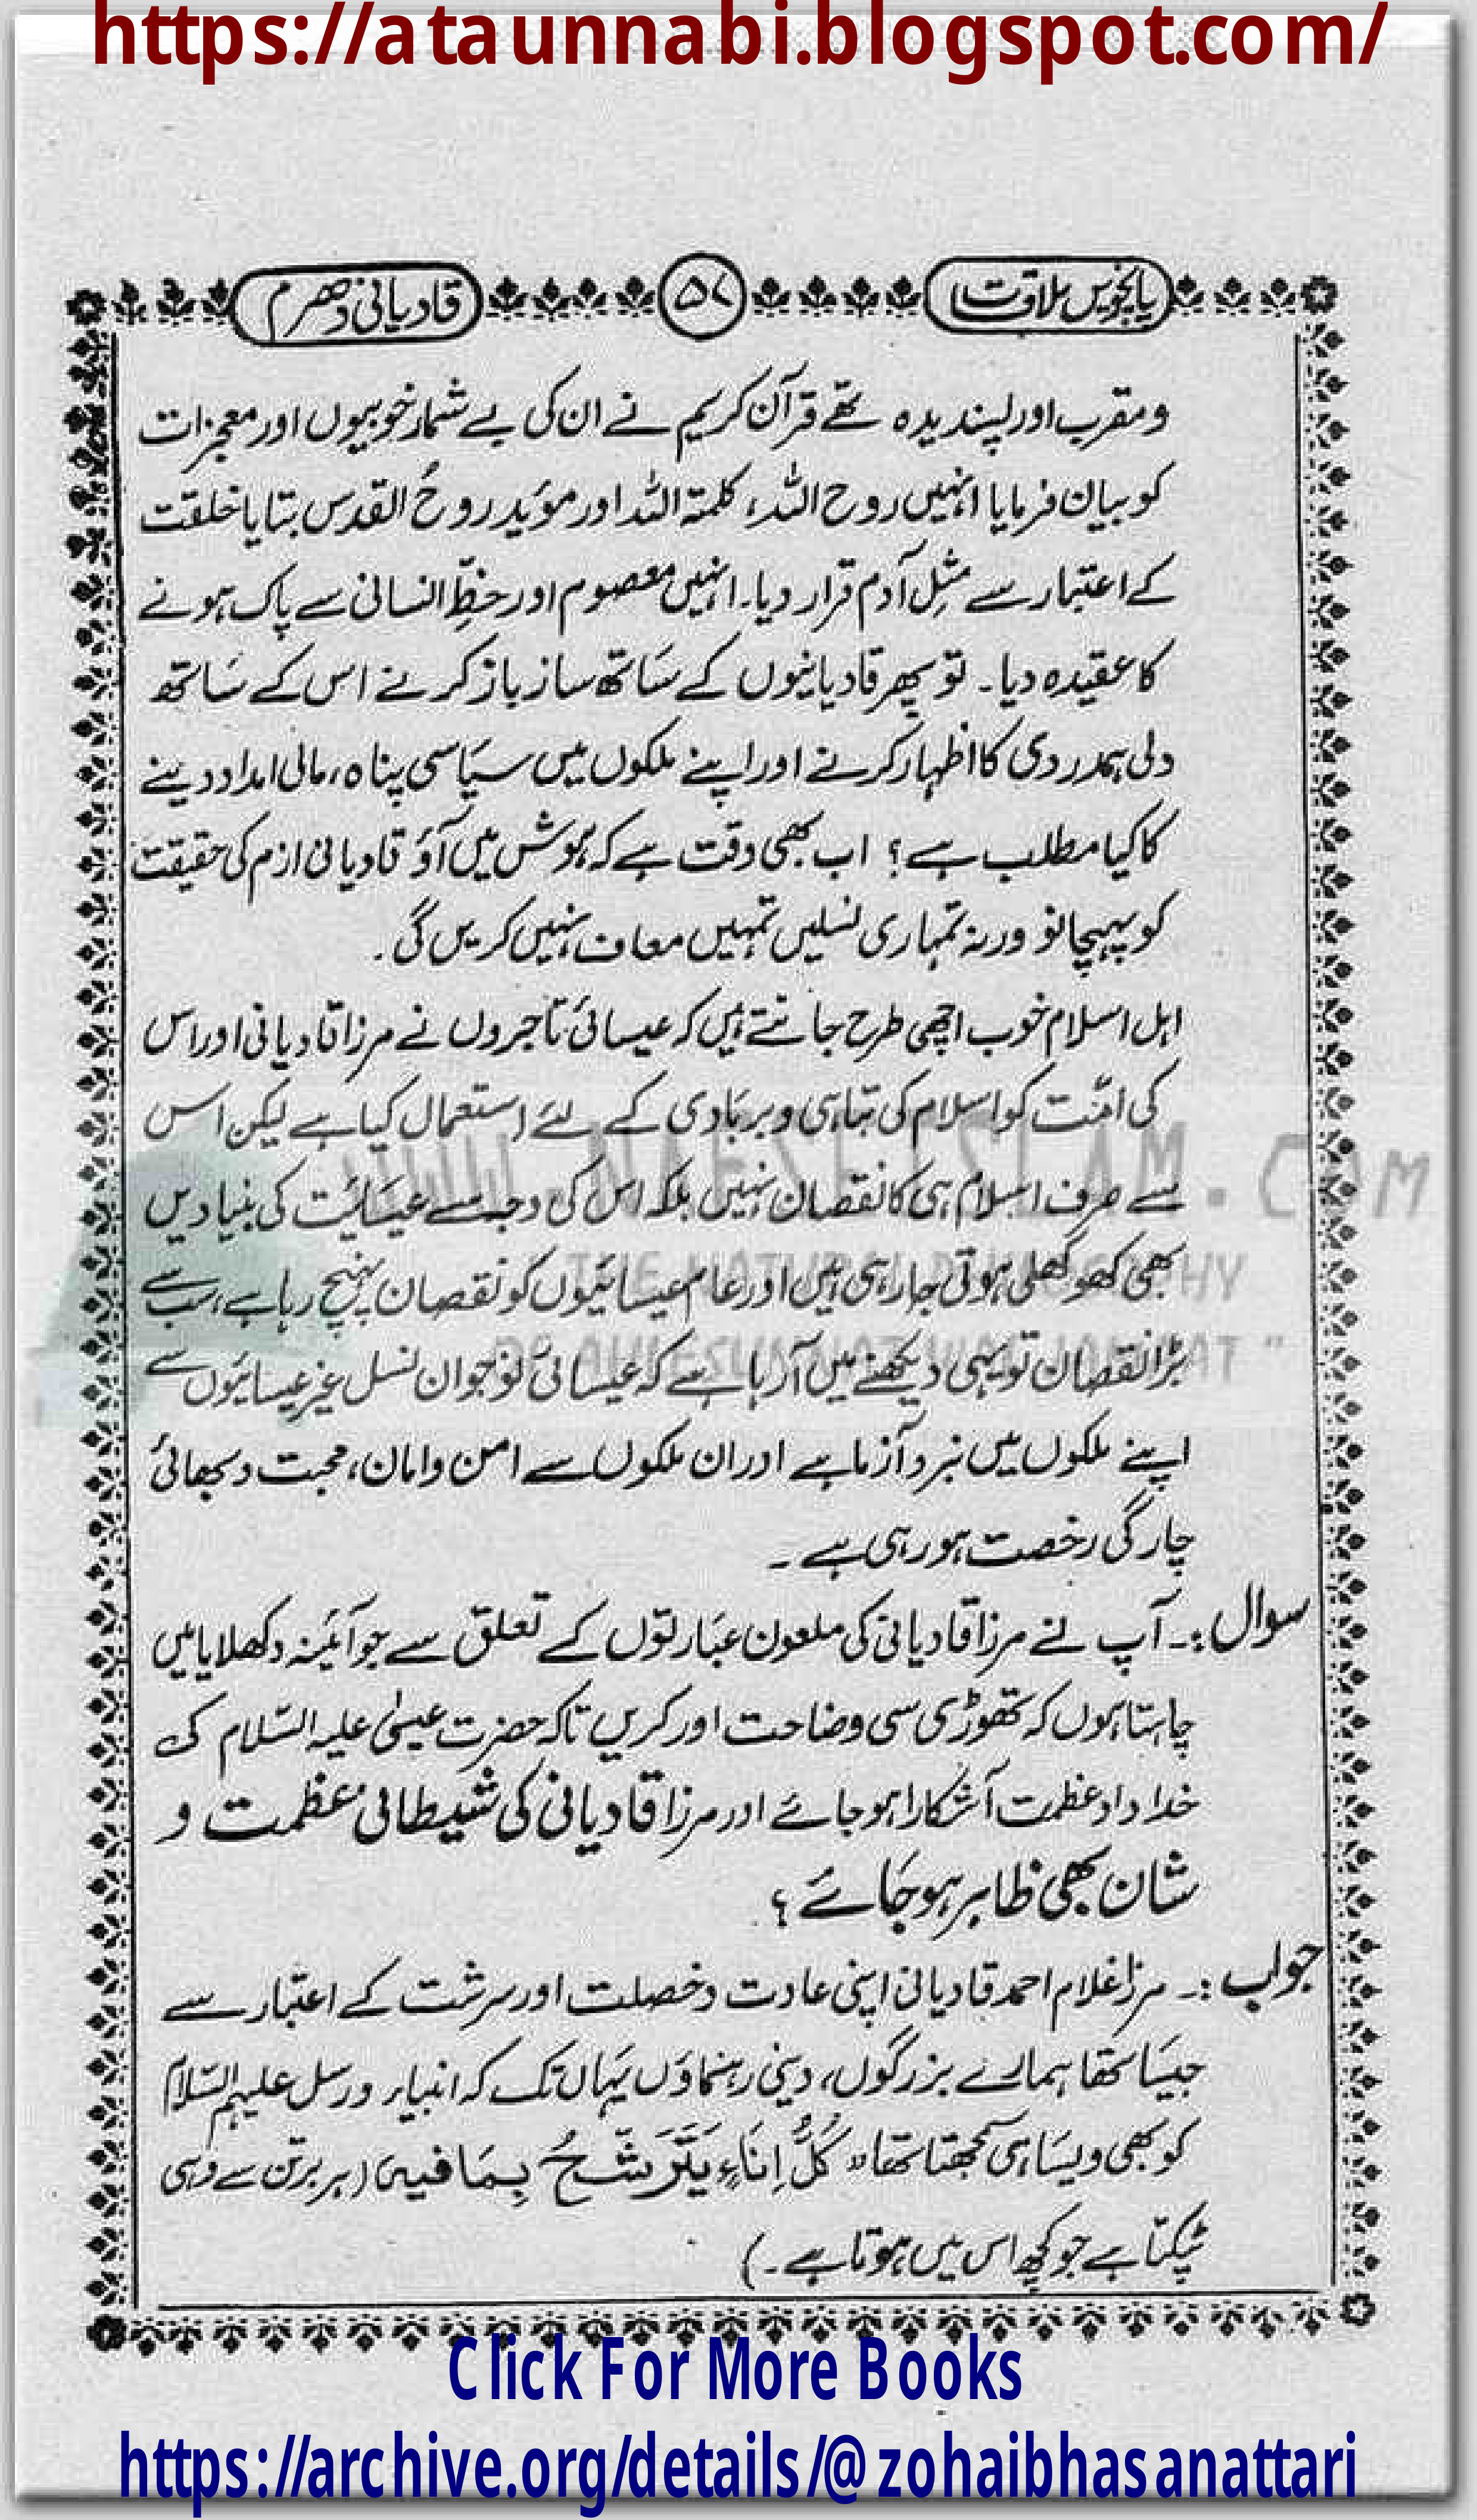 https://ataunnabi.blogspot.com/
پانچویں ملاقات ۵۷ قادیانی دھرم
ومقرب اور پسندیدہ تھے قرآن کریم نے ان کی بے شمار خوبیوں اور معجزات
کو بیان فرمایا انہیں روح اللہ، کلمۃ اللہ اور موید روحُ القدس بتایا خلقت
کے اعتبار سے مثِل آدم قرار دیا۔ انہیں معصوم اور حظِّ انسانی سے پاک ہونے
کا عقیدہ دیا۔ تو پھر قادیانیوں کے ساتھ ساز باز کرنے اس کے ساتھ
دلی ہمدردی کا اظہار کرنے اور اپنے ملکوں میں سیاسی پناہ، مالی امداد دینے
کا کیا مطلب ہے؟ اب بھی وقت ہے کہ ہوش میں آؤ قادیانی ازم کی حقیقت
کو پہچانو ورنہ تمہاری نسلیں تمہیں معاف نہیں کریں گی۔
اہل اسلام خوب اچھی طرح جانتے ہیں کہ عیسائی تاجروں نے مرزا قادیانی اور اس
کی امّت کو اسلام کی تباہی و بربادی کے لئے استعمال کیا ہے لیکن اس
سے صرف اسلام ہی کا نقصان نہیں بلکہ اس کی وجہ سے عیسائیت کی بنیادیں
بھی کھوکھلی ہوتی جا رہی ہیں اور عام عیسائیوں کو نقصان پہنچ رہا ہے، سب سے
بڑا نقصان تو یہی دیکھنے میں آ رہا ہے کہ عیسائی نوجوان نسل غیر عیسائیوں سے
اپنے ملکوں میں نبرد آزما ہے اور ان ملکوں سے امن وامان، محبت و بھائی
چارگی رخصت ہو رہی ہے۔
سوال :۔ آپ نے مرزا قادیانی کی ملعون عبارتوں کے تعلق سے جو آئینہ دکھلایا میں
چاہتا ہوں کہ تھوڑی سی وضاحت اور کریں تاکہ حضرت عیسیٰ علیہ السّلام کی
خداداد عظمت آشکارا ہو جائے اور مرزا قادیانی کی شیطانی عظمت و
شان بھی ظاہر ہو جائے؟
جواب :۔ مرزا غلام احمد قادیانی اپنی عادت و خصلت اور سرشت کے اعتبار سے
جیسا تھا ہمارے بزرگوں، دینی رہنماؤں یہاں تک کہ انبیاء و رسل علیہم السّلام
کو بھی ویسا ہی سمجھتا تھا "کُلُّ اِنَاءٍ یَتَرَشَّحُ بِمَا فیہ (ہر برتن سے وہی
ٹپکتا ہے جو کچھ اس میں ہوتا ہے۔)
WWW.NAFSEISLAM.COM
"THE NATURAL PHILOSOPHY
OF AHLESUNNAT WAL JAMAAT"
Click For More Books
https://archive.org/details/@zohaibhasanattari